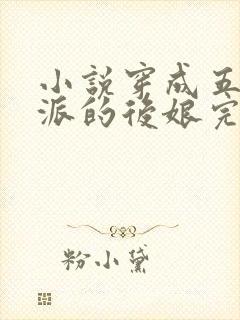 小説穿成五
派的後娘完
粉小黛